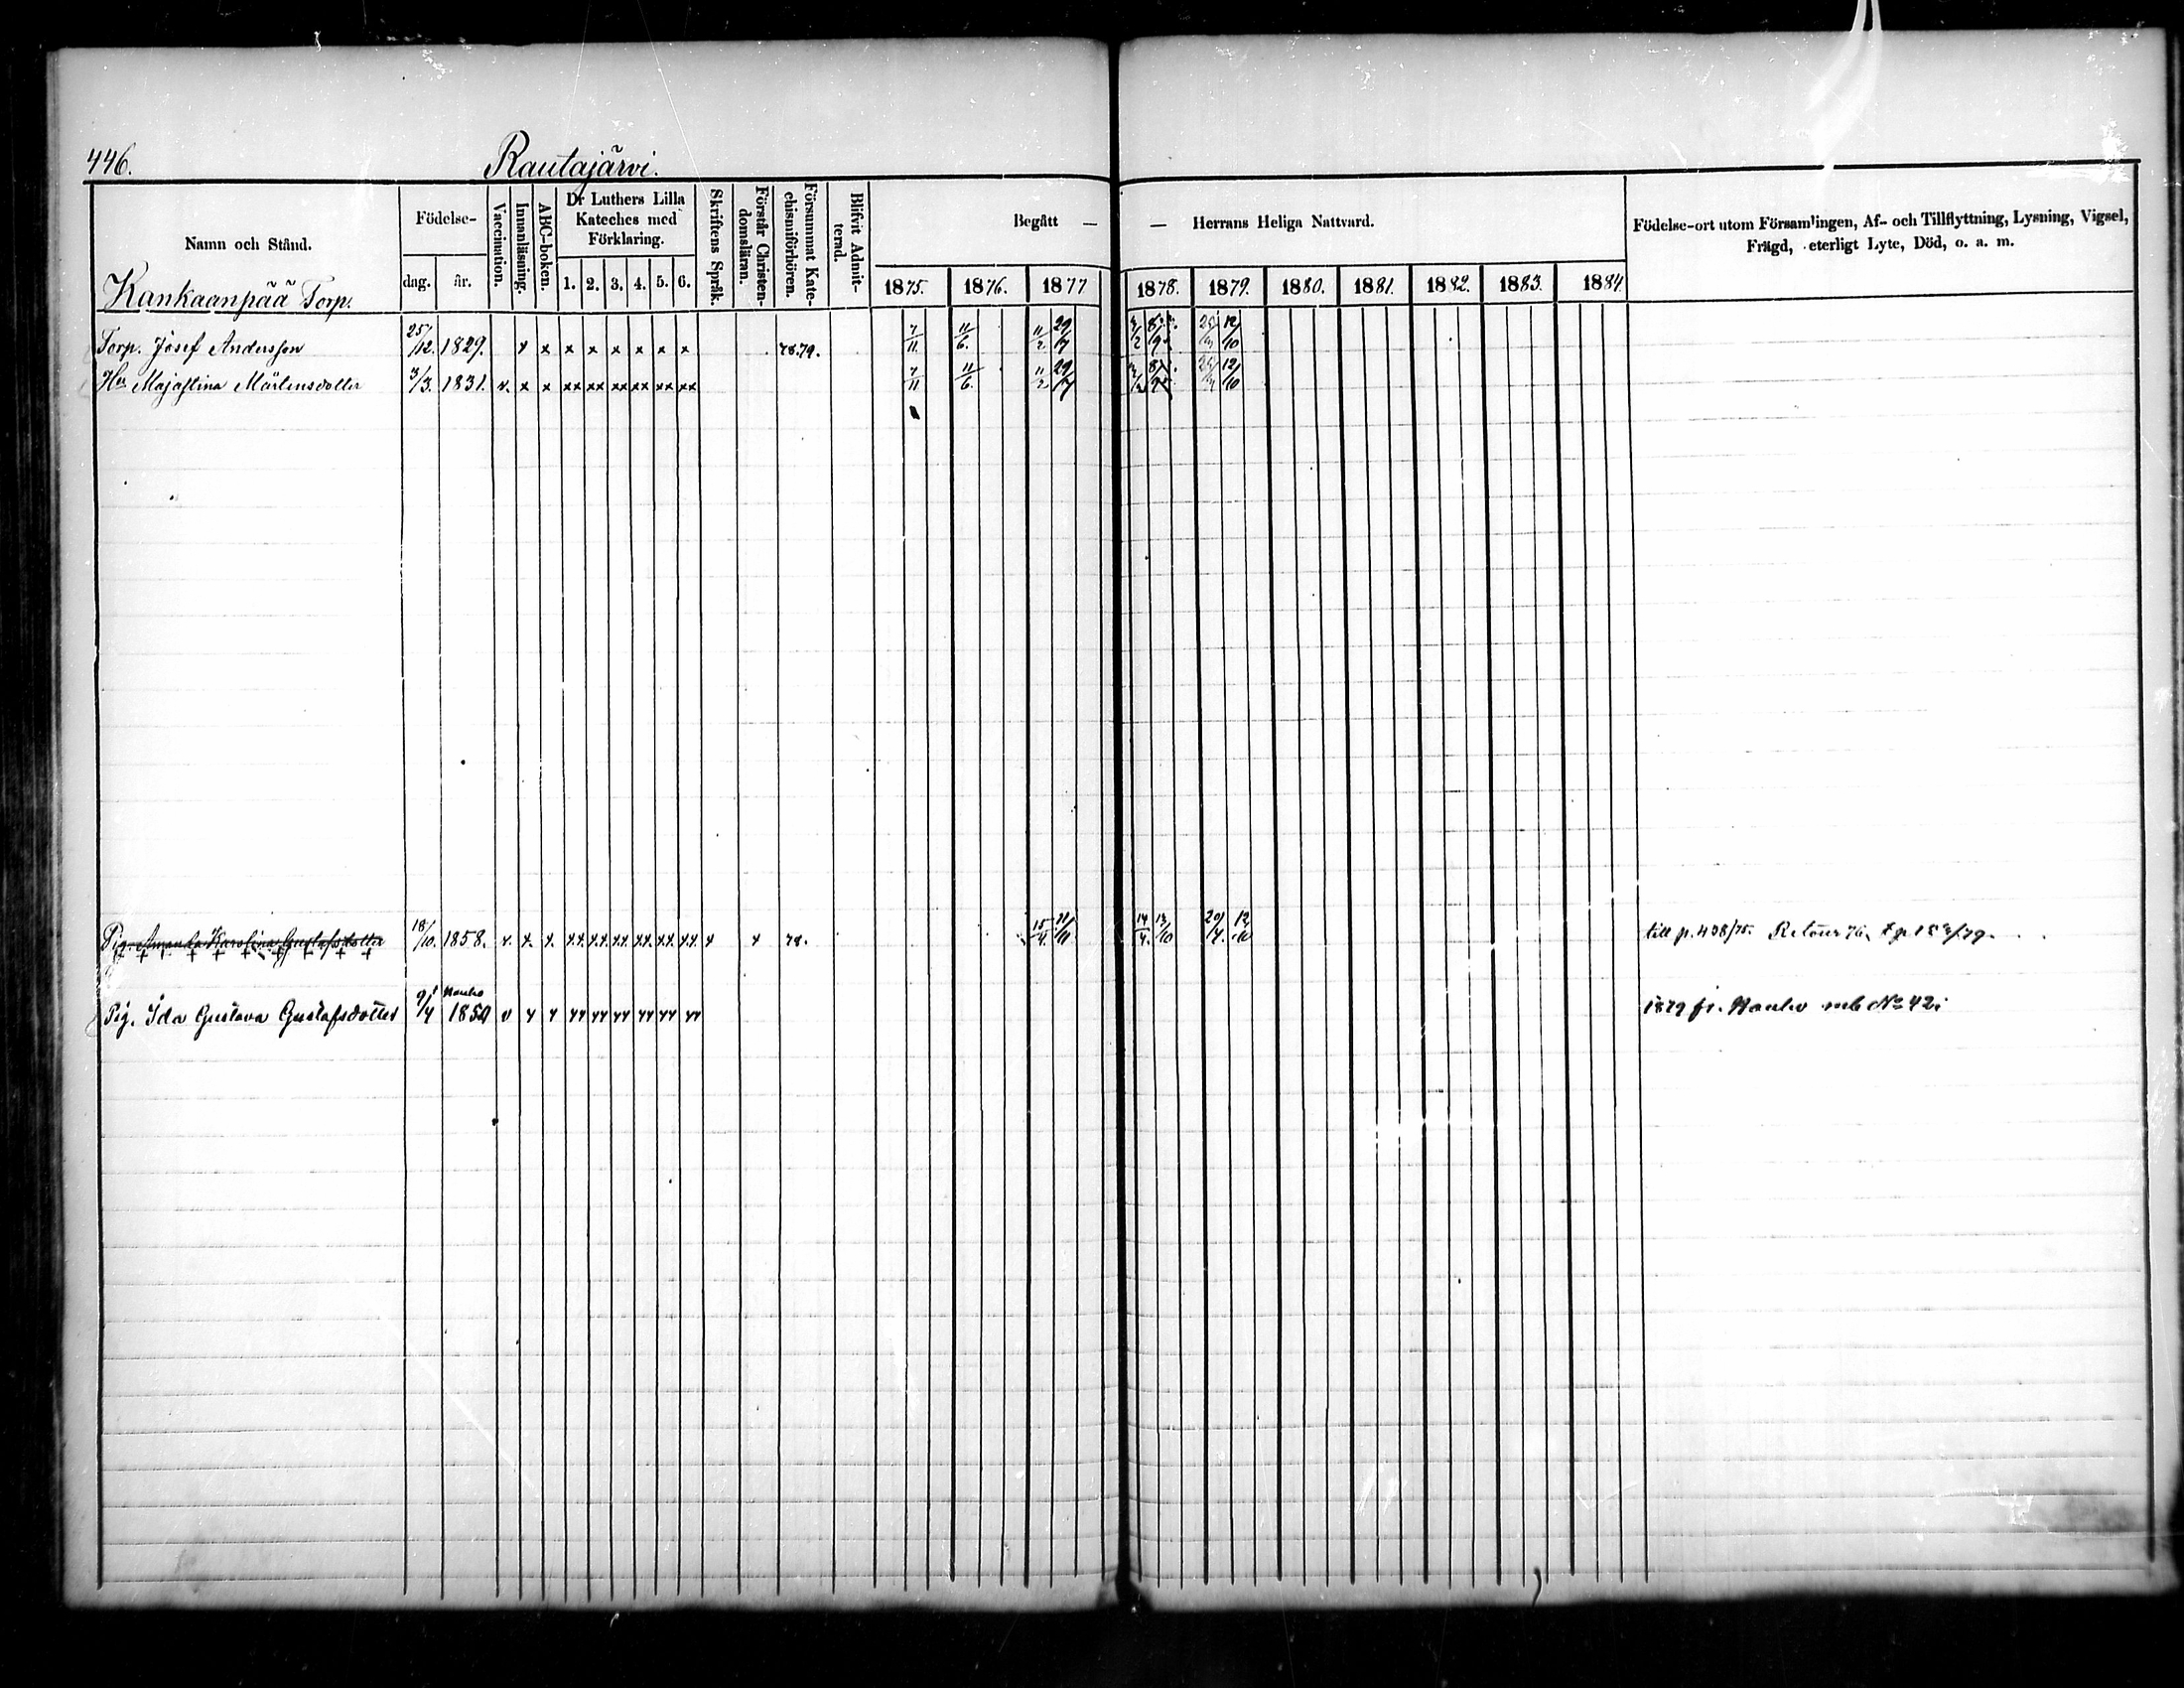 446. Rautajärvi.
Namn och Stånd. Födelse- dag. år. Vaccination. Innanläsning. ABC-boken. Dr Luthers Lilla Kateches med Förklaring. 1. 2. 3. 4. 5. 6. Skriftens Språk. Förstår Christendomsläran. Försummat Katechismiförhören. Blifvit Admitterad. Begått — — Herrans Heliga Nattvard. 1875. 1876. 1877 1878. 1879. 1880. 1881. 1882. 1883. 1884. Födelse-ort utom Församlingen, Af- och Tillflyttning, Lysning, Vigsel, Frägd, eterligt Lyte, Död, o. a. m.
Kankaanpää Torp.
Torp. Josef Andersson 25/12. 1829. x x x x x x x x 78.79. 7/11. 11/6. 11/2 29/7 12/10
Hu Majastina Mårtensdotter 3/3. 1831. v. x x xx xx xx xx xx xx 7/11 11/6. 11/2 29/7 12/10
Pig. Amanda Karolina Gustafsdotter 18/10. 1858. v. x. x. xx. xx. xx. xx. xx. xx. x x 78. 15/4. 11/11 14/4. 13/10 20/4. 12/10 till p. 438/75. Retour 76.
Pig. Ida Gustava Gustafsdotter 9/4 Nauvo 1850 v x x xx xx xx xx xx xx 1879 fr. Nauvo mb No 42